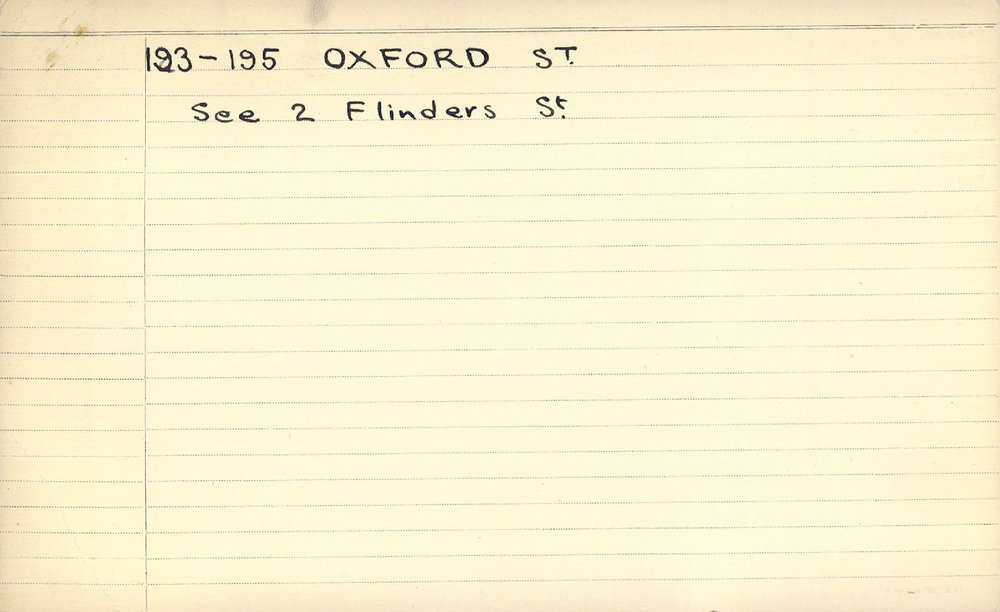 193-195 OXFORD ST.
See 2 Flinders St.